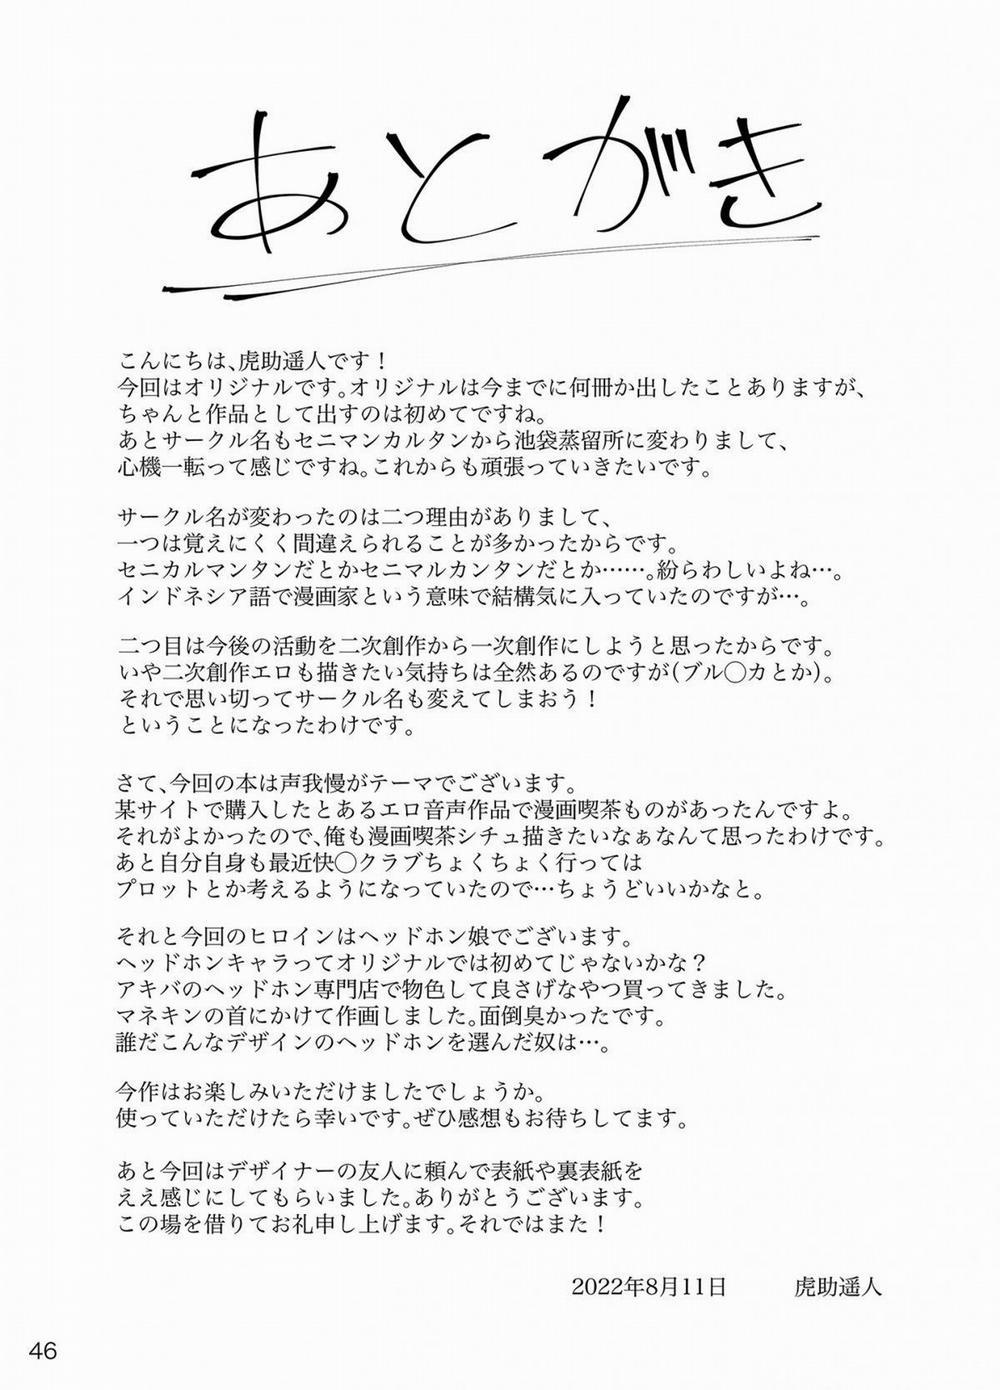 あとがき
こんにちは、虎助遥人です！
今回はオリジナルです。オリジナルは今までに何冊か出したことありますが、
ちゃんと作品として出すのは初めてですね。
あとサークル名もセニマンカルタンから池袋蒸留所に変わりまして、
心機一転って感じですね。これからも頑張っていきたいです。
サークル名が変わったのは二つ理由がありまして、
一つは覚えにくく間違えられることが多かったからです。
セニカルマンタンだとかセニマルカンタンだとか……。紛らわしいよね…。
インドネシア語で漫画家という意味で結構気に入っていたのですが…。
二つ目は今後の活動を二次創作から一次創作にしようと思ったからです。
いや二次創作エロも描きたい気持ちは全然あるのですが(ブル◯カとか)。
それで思い切ってサークル名も変えてしまおう！
ということになったわけです。
さて、今回の本は声我慢がテーマでございます。
某サイトで購入したとあるエロ音声作品で漫画喫茶ものがあったんですよ。
それがよかったので、俺も漫画喫茶シチュ描きたいなぁなんて思ったわけです。
あと自分自身も最近快◯クラブちょくちょく行っては
プロットとか考えるようになっていたので…ちょうどいいかなと。
それと今回のヒロインはヘッドホン娘でございます。
ヘッドホンキャラってオリジナルでは初めてじゃないかな？
アキバのヘッドホン専門店で物色して良さげなやつ買ってきました。
マネキンの首にかけて作画しました。面倒臭かったです。
誰だこんなデザインのヘッドホンを選んだ奴は…。
今作はお楽しみいただけましたでしょうか。
使っていただけたら幸いです。ぜひ感想もお待ちしてます。
あと今回はデザイナーの友人に頼んで表紙や裏表紙を
ええ感じにしてもらいました。ありがとうございます。
この場を借りてお礼申し上げます。それではまた！
2022年8月11日 虎助遥人
46